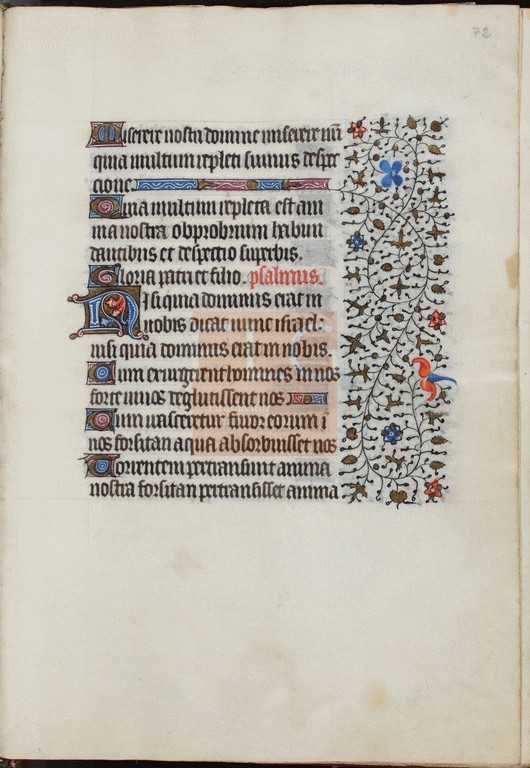 72
Miserere nostri domine miserere nr̄i
quia multum repleti sumus despe
ctione
Quia multum repleta est ani
ma nostra obprobrium habun
dantibus et despectio superbis.
Gloria patri et filio. psalmus.
Nisi quia dominus erat in
nobis dicat nunc israel:
nisi quia dominus erat in nobis.
Cum exurgerent homines in nos
forte vivos deglutissent nos
Cum irasceretur furor eorum i
nos forsitan aqua absorbuisset nos
Torrentem pertransivit anima
nostra forsitan pertransisset anima